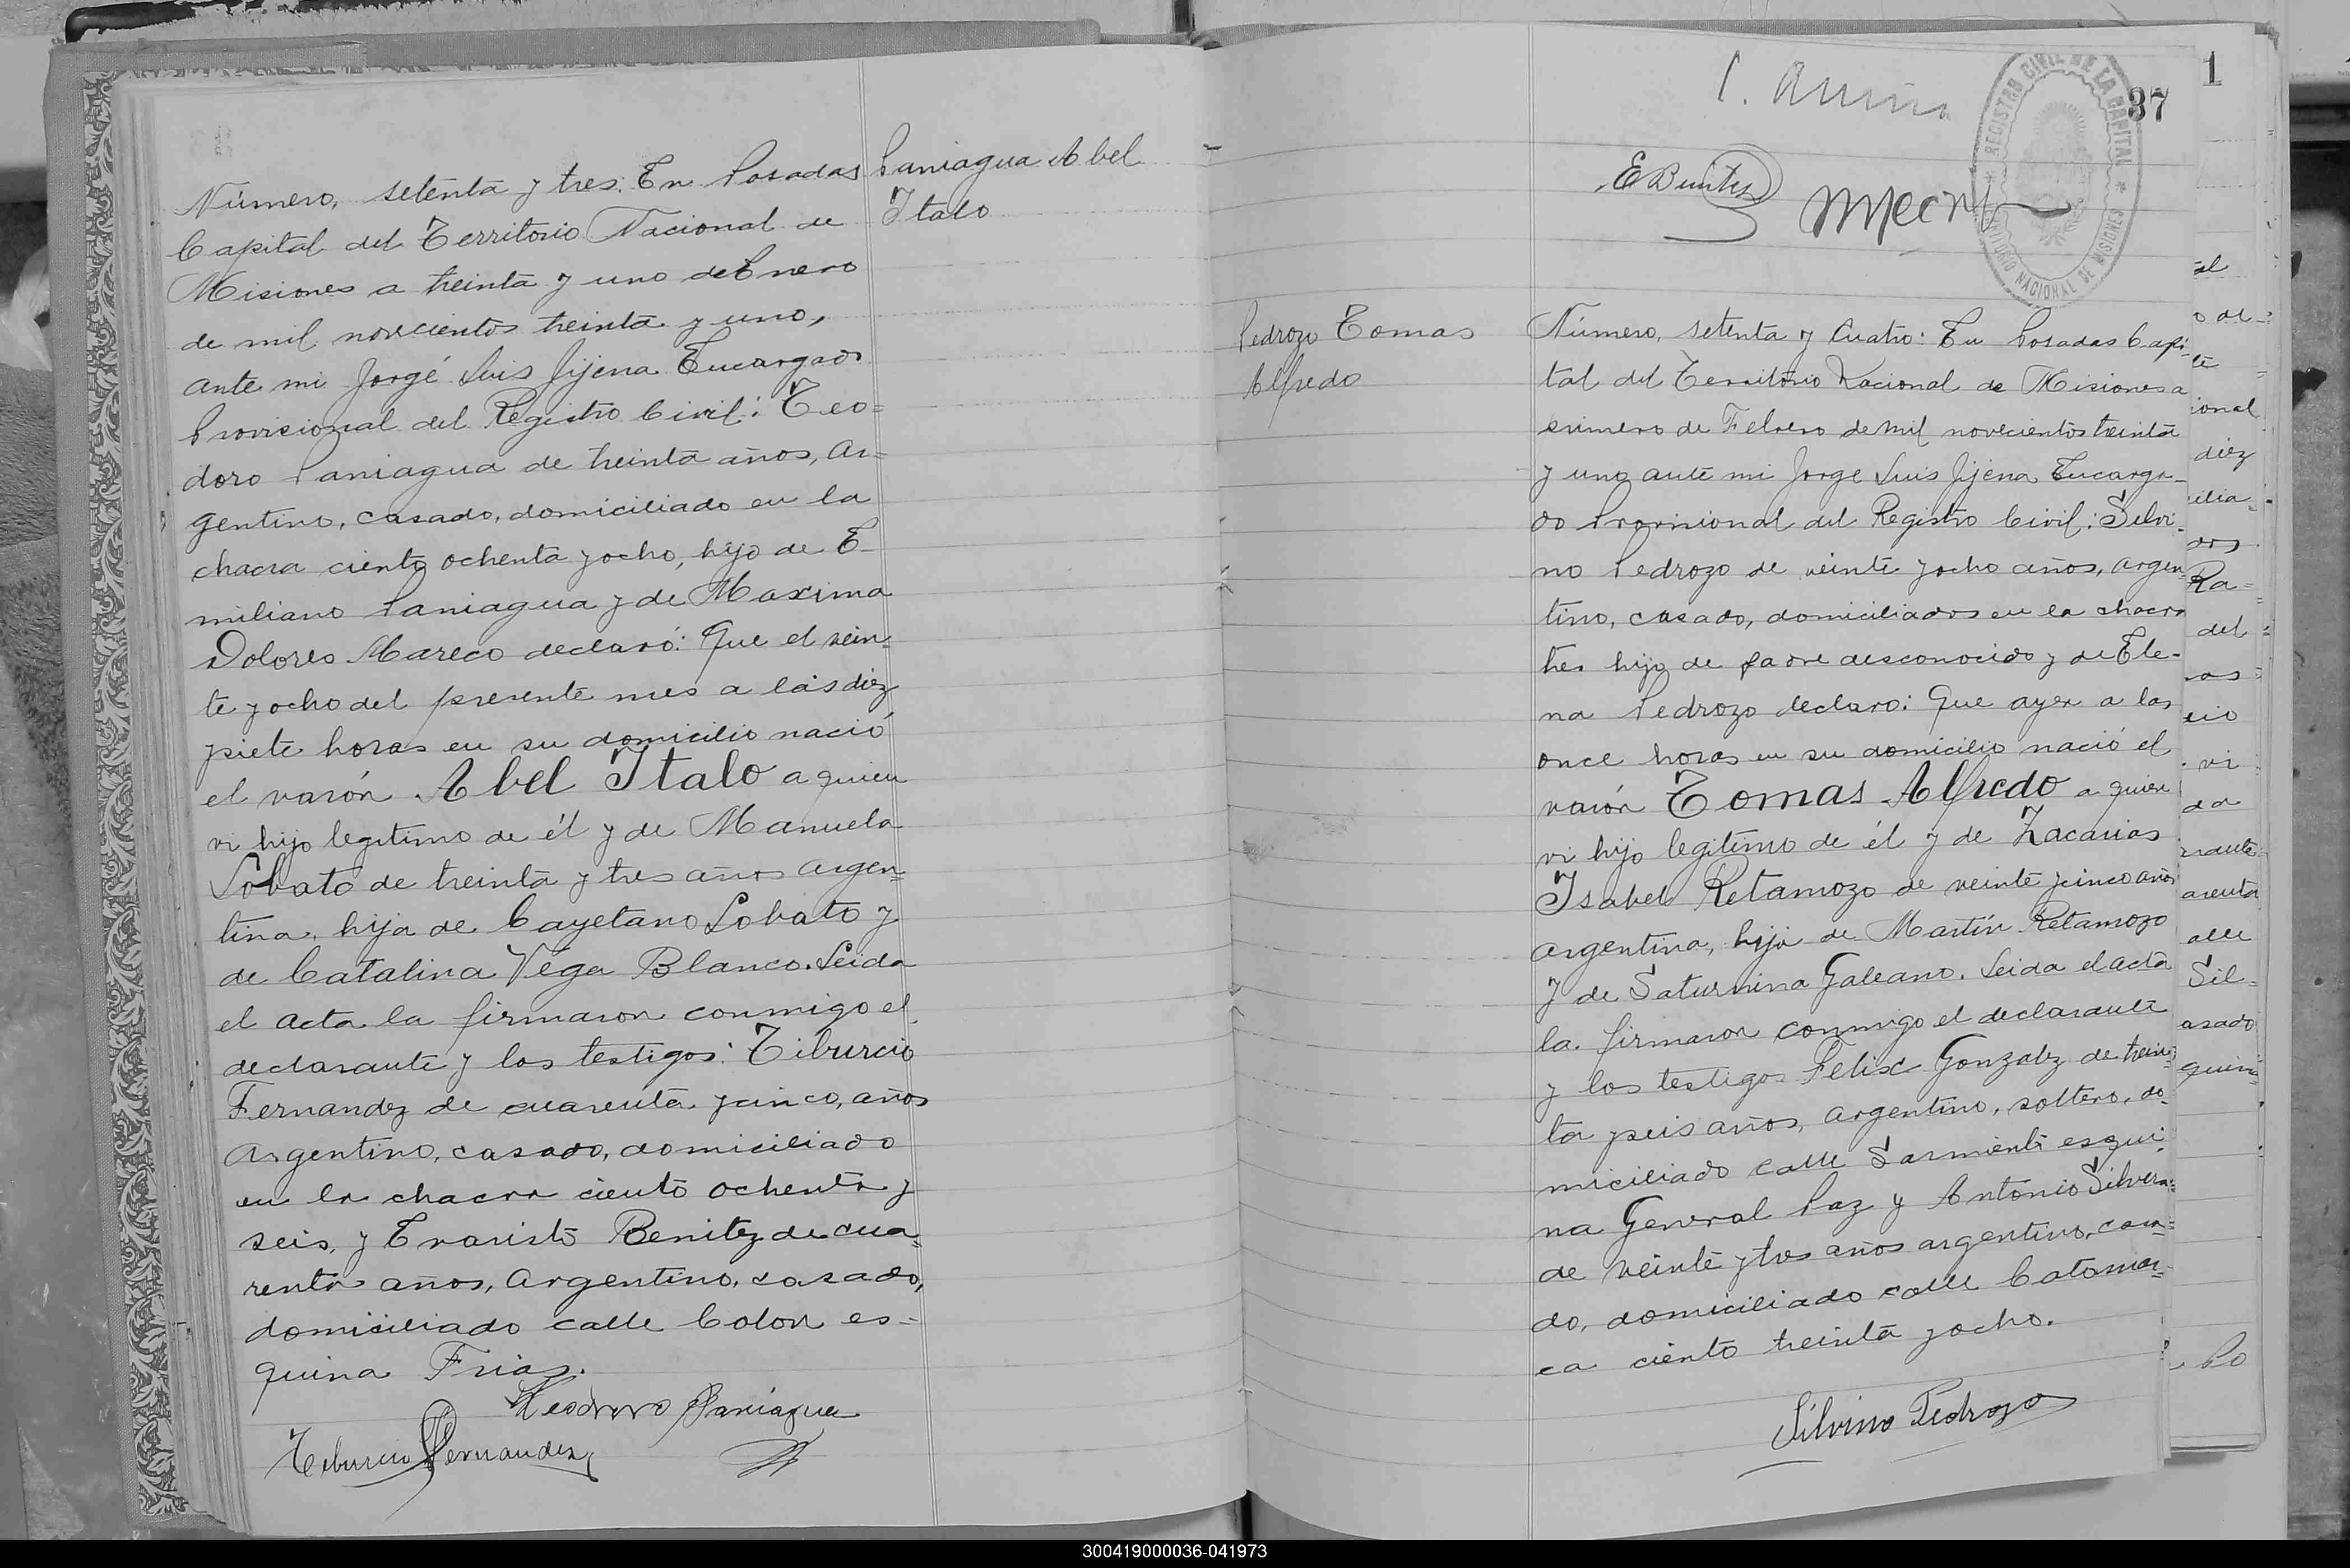 Número, setenta y tres: En Posadas
Capital del Territorio Nacional de
Misiones a treinta y uno de Enero
de mil novecientos treinta y uno,
ante mi Jorgé Luis Jijena Encargado
Provisional del Registro Civil: Teo=
doro Paniagua de treinta años, ar=
gentino, casado, domiciliado en la
chacra ciento ochenta y ocho, hijo de E-
miliano Paniagua y de Maxima
Dolores Mareco declaró: Que el vein-
te y ocho del presente mes a las diez
y siete horas en su domicilio nació
el varón Abel Italo a quien
vi hijo legitimo de él y de Manuela
Lobato de treinta y tres años argen=
tina, hija de Cayetano Lobato y
de Catalina Vega Blanco. Leida
el acta la firmaron conmigo el
declarante y los testigos: Tiburcio
Fernandez de cuarenta y cinco, años
argentino, casado, domiciliado
en la chacra ciento ochenta y
seis, y Evaristo Benitez de cua=
renta años, argentino, casado,
domiciliado calle Colon es=
quina Frias.
Teodoro Paniagua
Tiburcio Fernandez
Paniagua Abel
Italo
1
37
REGISTRO CIVIL DE LA CAPITAL
TERRITORIO NACIONAL DE MISIONES
E Benitez
Pedrozo Tomas
Alfredo
Número, setenta y cuatro: En Posadas Capi-
tal del Territorio Nacional de Misiones a
primero de Febrero de mil novecientos treinta
y uno ante mi Jorge Luis Jijena Encarga-
do Provisional del Registro Civil: Silvi-
no Pedrozo de veinte y ocho años, argen-
tino, casado, domiciliados en la chacra
tres hijo de padre desconocido y de Ele-
na Pedrozo declaro: Que ayer a las
once horas en su domicilio nació el
varón Tomas Alfredo a quien
vi hijo legitimo de él y de Zacarias
Isabel Retamozo de veinte y cinco años
argentina, hija de Martín Retamozo
y de Saturnina Galeano. Leida el acta
la firmaron conmigo el declarante
y los testigos Felix Gonzalez de trein=
ta y seis años, argentino, soltero, do-
miciliado calle Sarmiento esqui-
na General Paz y Antonio Silvera=
de veinte y tres años argentino, casa=
do, domiciliado calle Catamar=
ca ciento treinta y ocho.
Silvino Pedrozo
ional
diez
Ra=
del
alle
Sil=
asado
300419000036-041973